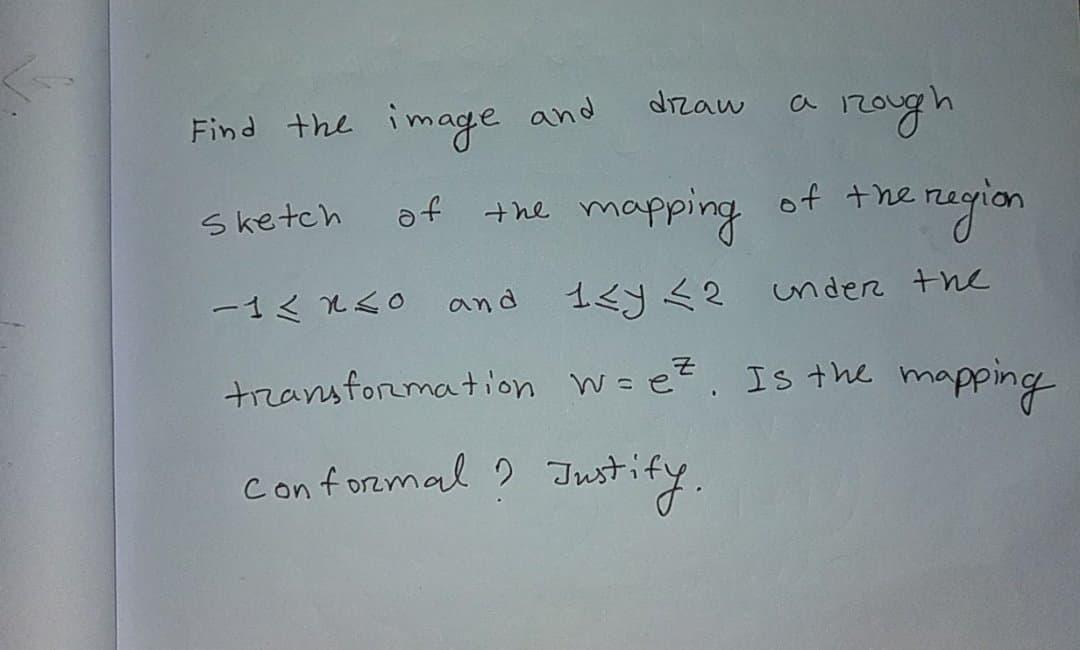 Find the image and draw a rough
sketch of the mapping of the region
-1 ≤ x ≤ 0 and 1 ≤ y ≤ 2 under the
transformation w = e^z. Is the mapping
conformal? Justify.